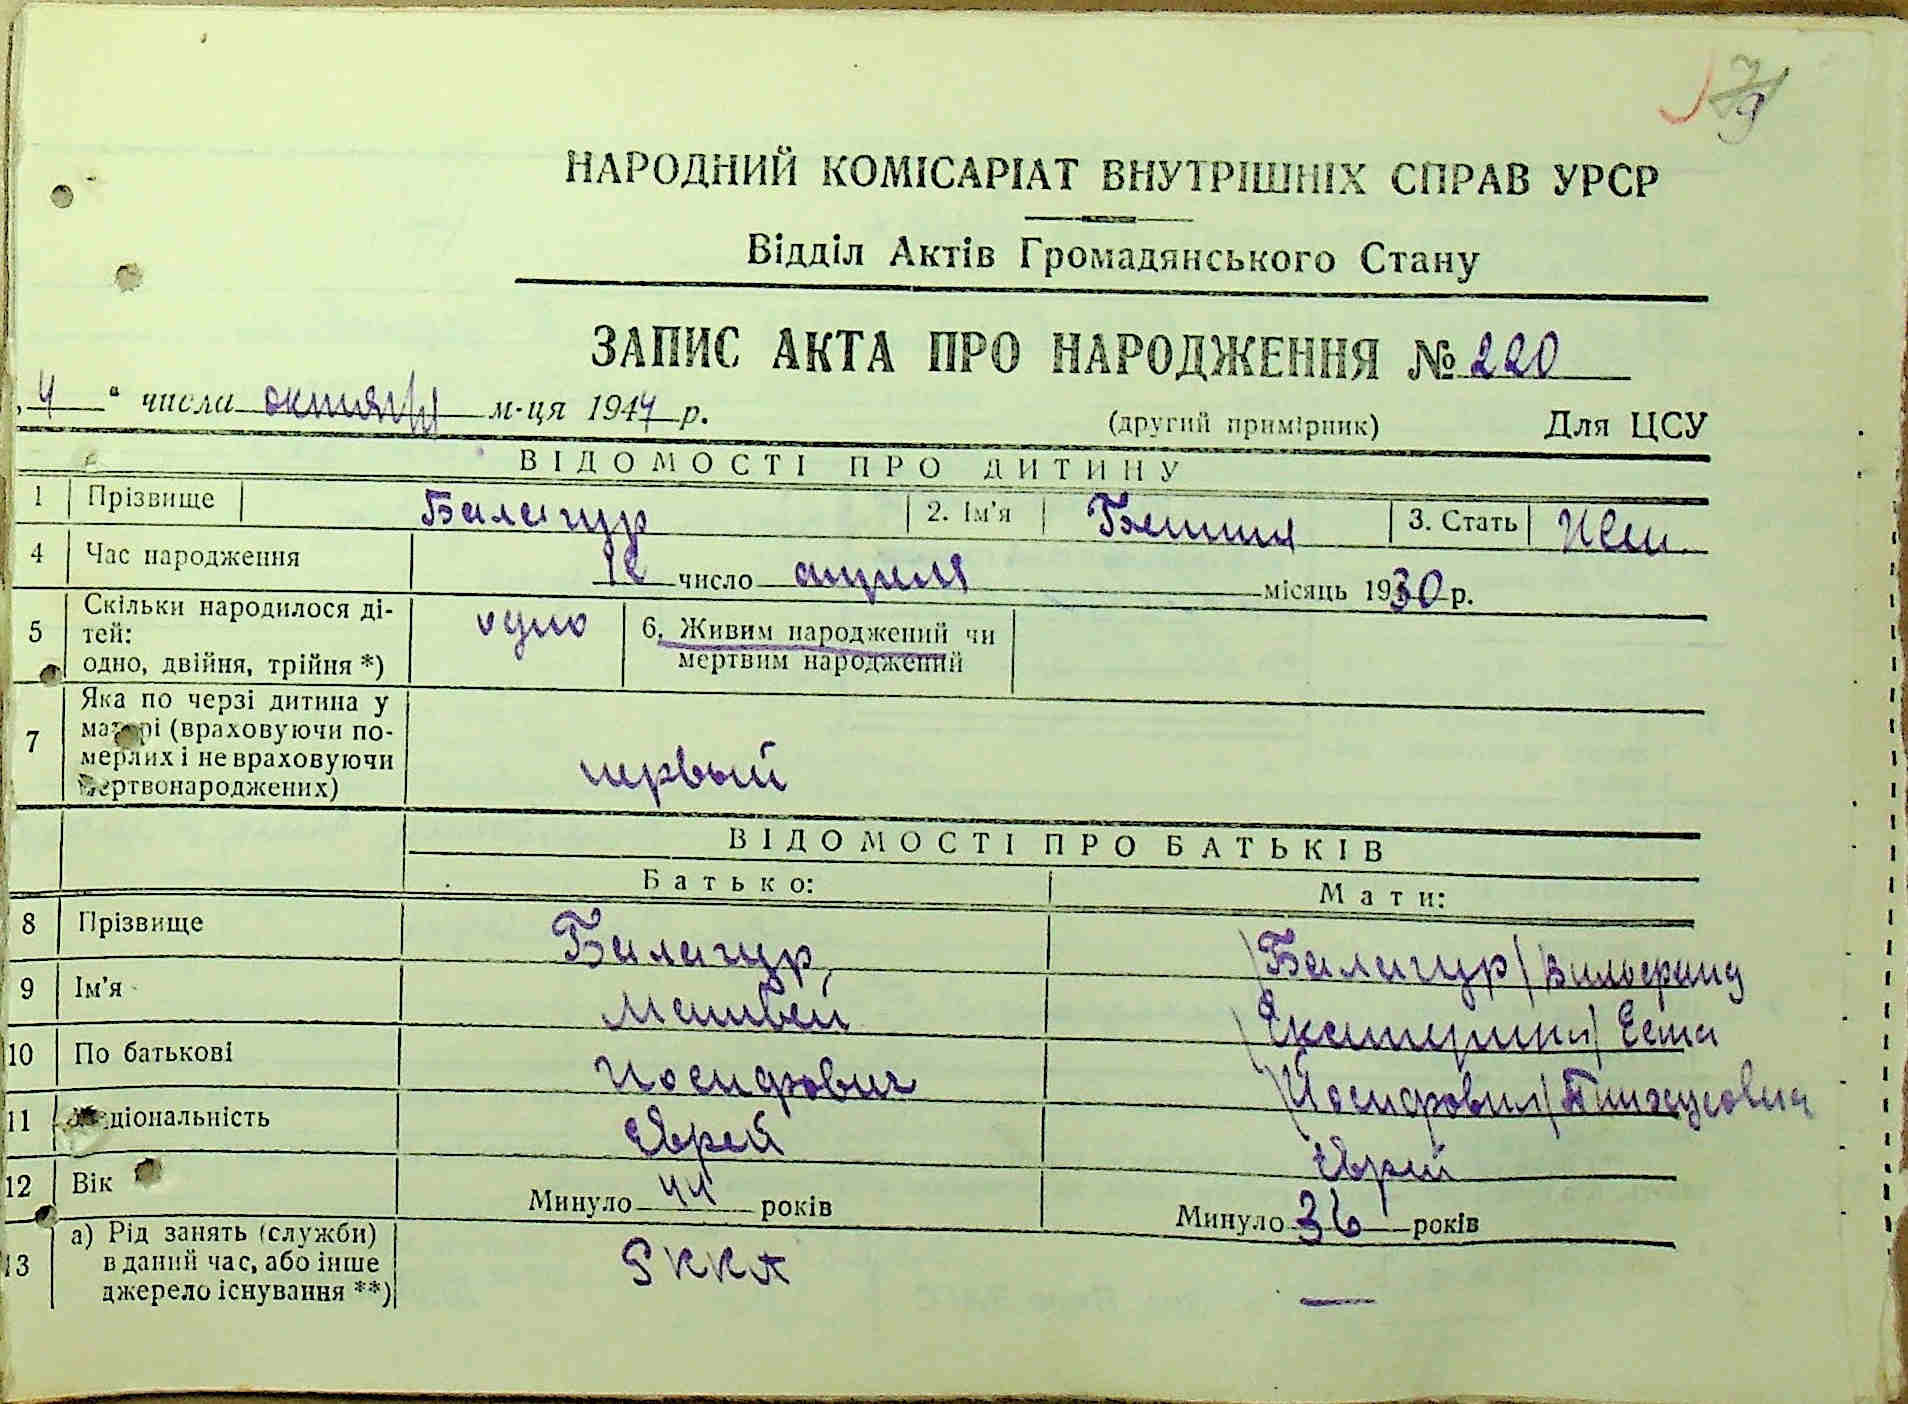 79
НАРОДНИЙ КОМІСАРІАТ ВНУТРІШНІХ СПРАВ УРСР
Відділ Актів Громадянського Стану
ЗАПИС АКТА ПРО НАРОДЖЕННЯ № 220
„4“ числа октября м-ця 1944 р. (другий примірник) Для ЦСУ
ВІДОМОСТІ ПРО ДИТИНУ
1 Прізвище Балагур 2. Ім'я 3. Стать жен.
4 Час народження 12 число апреля місяць 1930 р.
5 Скільки народилося ді-
тей:
одно, двійня, трійня *) одно 6. Живим народжений чи
мертвим народжений
7 Яка по черзі дитина у
матері (враховуючи по-
мерлих і не враховуючи
мертвонароджених) первый
ВІДОМОСТІ ПРО БАТЬКІВ
Батько: Мати:
8 Прізвище Балагур /Балагур/ Вильфанд
9 Ім'я Матвей /Екатерина/ Еста
10 По батькові Иосифович /Иосифовна/ Пинхусовна
11 Національність Еврей Еврей
12 Вік Минуло 41 років Минуло 36 років
13 а) Рід занять (служби)
в даний час, або інше
джерело існування **) РККА —